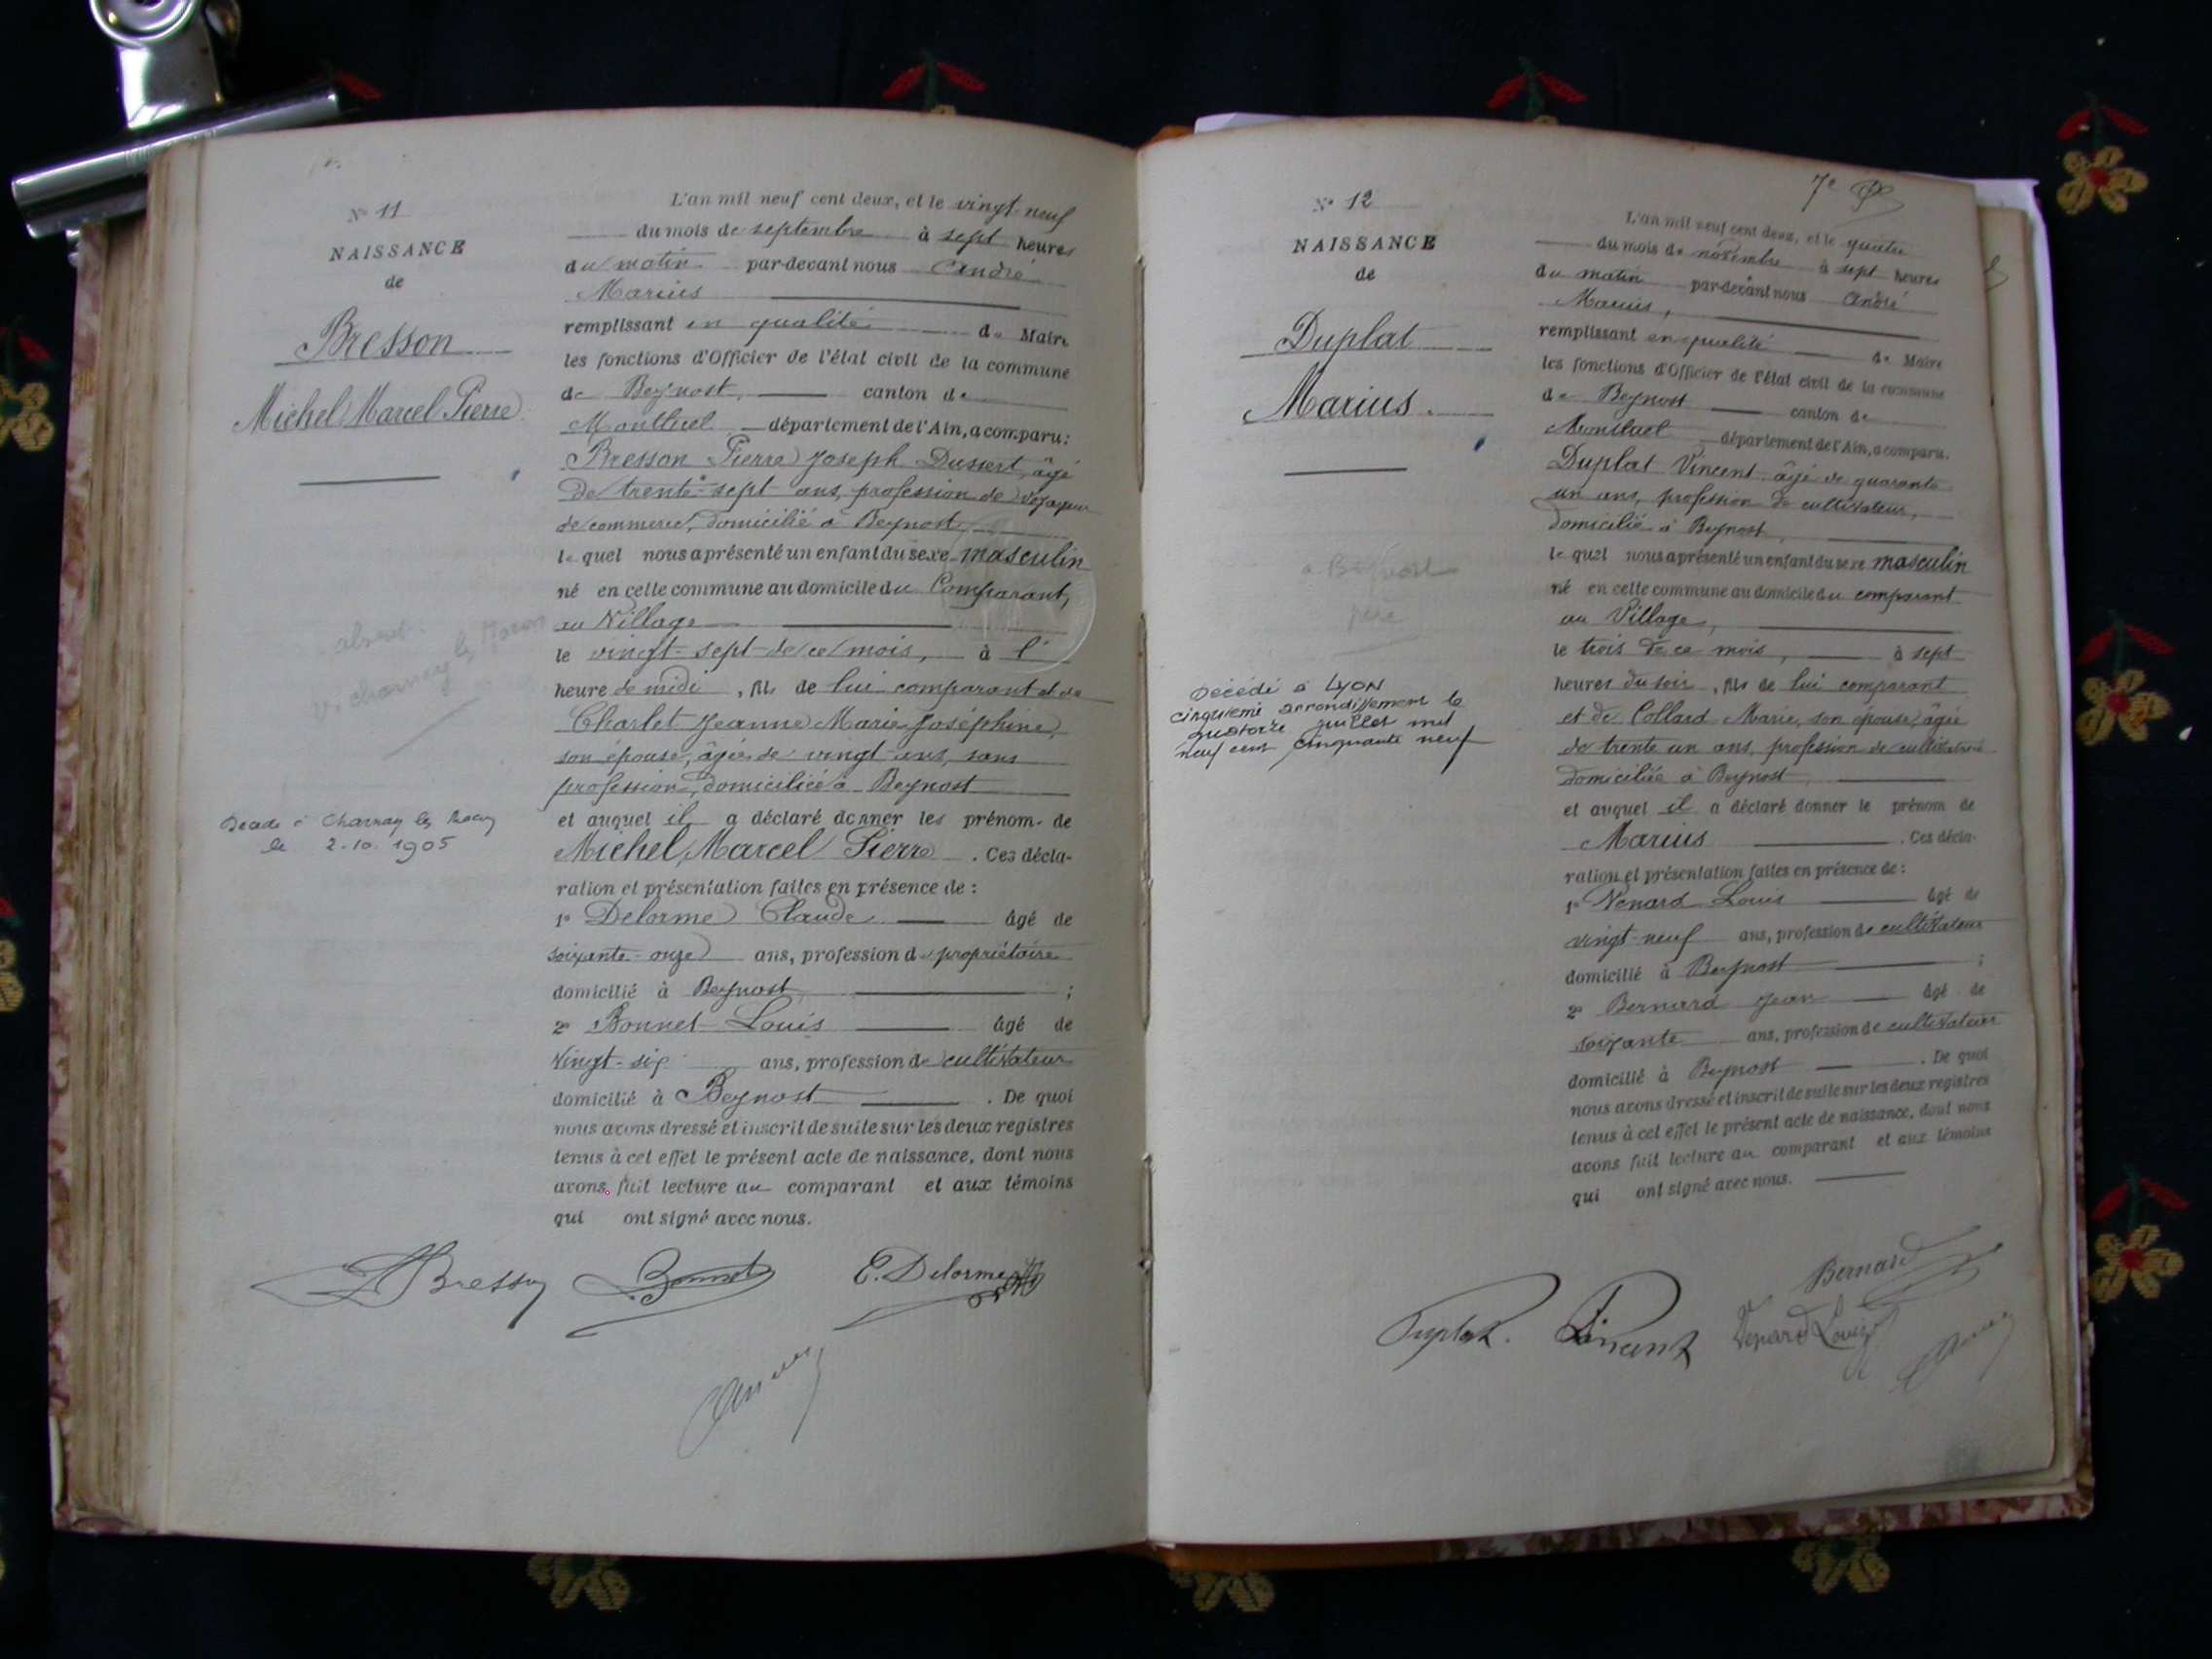 N° 11
NAISSANCE
de
Bresson
Michel Marcel Pierre
absent
Décédé à Charnay les Macon
le 2.10.1905
L'an mil neuf cent deux, et le vingt-neuf
du mois de septembre à sept heures
du matin par-devant nous André
Marius
remplissant en qualité de Maire
les fonctions d'Officier de l'état civil de la commune
de Beynost, canton de
Montluel département de l'Ain, a comparu:
Bresson Pierre Joseph Dussert, âgé
de trente-sept ans, profession de voyageur
de commerce, domicilié à Beynost,
lequel nous a présenté un enfant du sexe masculin
né en cette commune au domicile du Comparant,
au Village
le vingt-sept de ce mois, à l'
heure de midi, fils de lui comparant et de
Charlet Jeanne Marie Joséphine,
son épouse, âgée de vingt ans, sans
profession, domiciliée à Beynost
et auquel il a déclaré donner les prénom- de
Michel, Marcel Pierre. Ces décla-
ration et présentation faites en présence de :
1° Delorme Claude âgé de
soixante-onze ans, profession de propriétaire
domicilié à Beynost ;
2° Bonnet Louis âgé de
vingt-six ans, profession de cultivateur
domicilié à Beynost. De quoi
nous avons dressé et inscrit de suite sur les deux registres
tenus à cet effet le présent acte de naissance, dont nous
avons fait lecture au comparant et aux témoins
qui ont signé avec nous.
Bresson Bonnet C. Delorme
7e
N° 12
NAISSANCE
de
Duplat
Marius.
à Beynost
père
Décédé à LYON
cinquième arrondissement le
quatorze juillet mil
neuf cent cinquante neuf
L'an mil neuf cent deux, et le quatre
du mois de novembre à sept heures
du matin par-devant nous André
Marius,
remplissant en qualité de Maire
les fonctions d'Officier de l'état civil de la commune
de Beynost canton de
Montluel département de l'Ain, a comparu.
Duplat Vincent âgé de quarante
un ans, profession de cultivateur,
domicilié à Beynost,
lequel nous a présenté un enfant du sexe masculin
né en cette commune au domicile du comparant
au Village,
le trois de ce mois, à sept
heures du soir, fils de lui comparant
et de Collard Marie, son épouse, âgée
de trente un ans, profession de cultivatrice
domiciliée à Beynost,
et auquel il a déclaré donner le prénom de
Marius. Ces décla-
ration et présentation faites en présence de :
1° Venard Louis âgé de
vingt-neuf ans, profession de cultivateur
domicilié à Beynost ;
2° Bernard Jean âgé de
soixante ans, profession de cultivateur
domicilié à Beynost. De quoi
nous avons dressé et inscrit de suite sur les deux registres
tenus à cet effet le présent acte de naissance, dont nous
avons fait lecture au comparant et aux témoins
qui ont signé avec nous.
Bernard
Duplat. Vincent Venard Louis